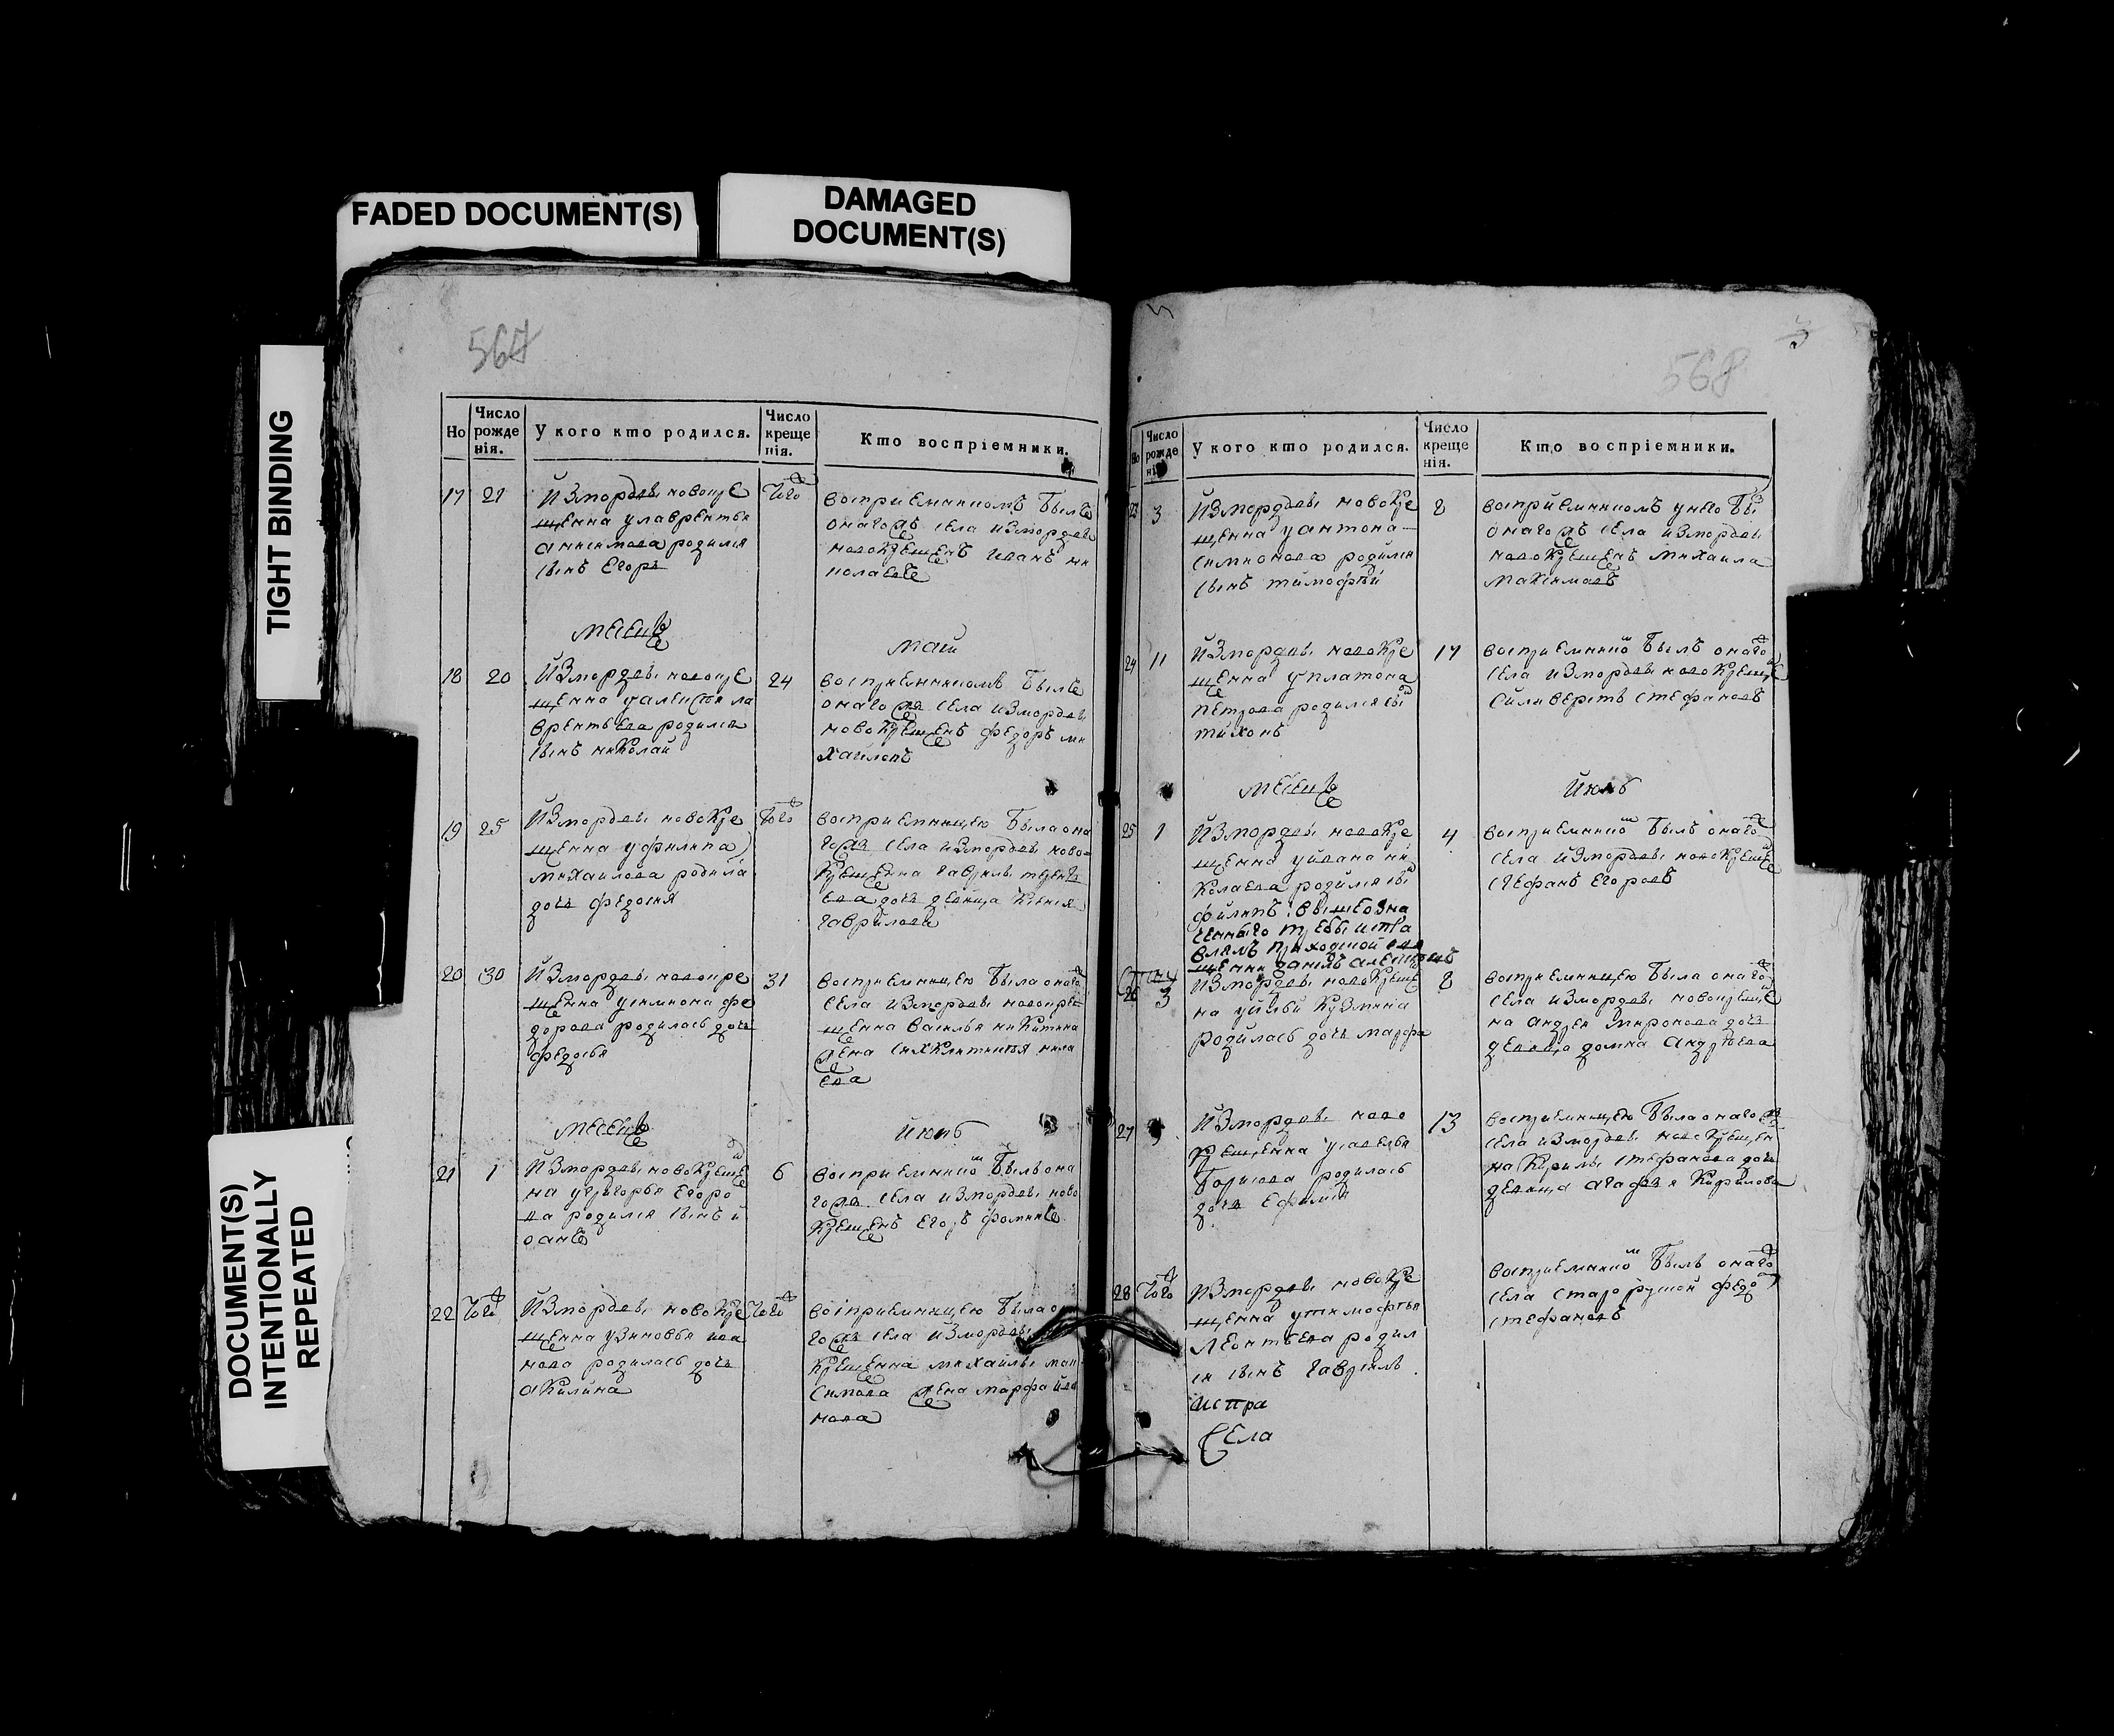 FADED DOCUMENT(S)
DAMAGED
DOCUMENT(S)
TIGHT BINDING
DOCUMENT(S)
INTENTIONALLY
REPEATED
567
Но
Число рожде нія.
У кого кто родился.
Число креще нія.
Кто воспріемники.
17 21
Измордвы новокре
щенна улаврентья
анисимова родился
сынъ егоръ
того
восприемникомъ былъ
оногожъ села измордвы
новокрещенъ иванъ ни
колаевъ
месецъ
маий
18 20
Измордвы новокре
щенна уалексея ла
врентьева родился
сынъ николай
24
восприемникомъ былъ
оногожъ села измордвы
новокрещенъ федоръ ми
хайловъ
19 25
Измордвы новокре
щенна уфилипа
михаилова родила
дочь федосия
того
восприемницею была она
гожъ села измордвы ново
крещенна гаврилы
ева дочь девица
гаврилова
20 30
Измордвы новокре
щенна усимиона фе
дорова родилась дочь
федосья
31
восприемницею была онаго
села измордвы новокре
щенна василья никитина
жена
ева
месецъ
июнь
21 1
Измордвы новокреще
на угригорья егоро
ва родился сынъ и
оанъ
6
восприемнико былъ она
гожъ села измордвы ново
крещенъ егоръ фоминъ
22 того
Измордвы новокре
щенна узиновья ива
нова родилась дочь
акилина
того
восприемницею была о
гожъ села измордвы
крещенна михайлы мак
симова жена марфа ива
нова
568
Но
Число рожде нія.
У кого кто родился.
Число креще нія.
Кто воспріемники.
23 3
Измордвы новокре
щенна уантона
симионова родился
сынъ тимофѣй
8
восприемникомъ унего бы
оногожъ села измордвы
новокрещенъ михаила
максимовъ
24 11
Измордвы новокре
щенна уплатона
петрова родился сы
тихонъ
17
восприемнико былъ онаго
села измордвы новокреще
силиверстъ стефановъ
месецъ
июль
25 1
Измордвы новокре
щенна уивана ни
колаева родился сы
филипъ вышеозна
ченныго требы испра
влялъ приходской
щенникъ данилъ алексеевъ
4
восприемнико былъ онаго
села измордвы новокреще
стефанъ егоровъ
26 3
Измордвы новокреще
на уильи кузмина
родилась дочь марфа
8
восприемницею была онаго
села измордвы новокреще
на андрея миронова дочь
девица домна андрѣева
27
Измордвы ново
крещенна усавелья
борисова родилась
дочь ефимия
13
восприемницею была оногожъ
села измордвы новокрещен
на кирилы стефанова дочь
девица агафья кирилова
28 того
Измордвы новокре
щенна утимофѣя
леонтьева родил
ся сынъ гаврилъ
испра
села
восприемнико былъ онаго
села старорусой федо
стефановъ